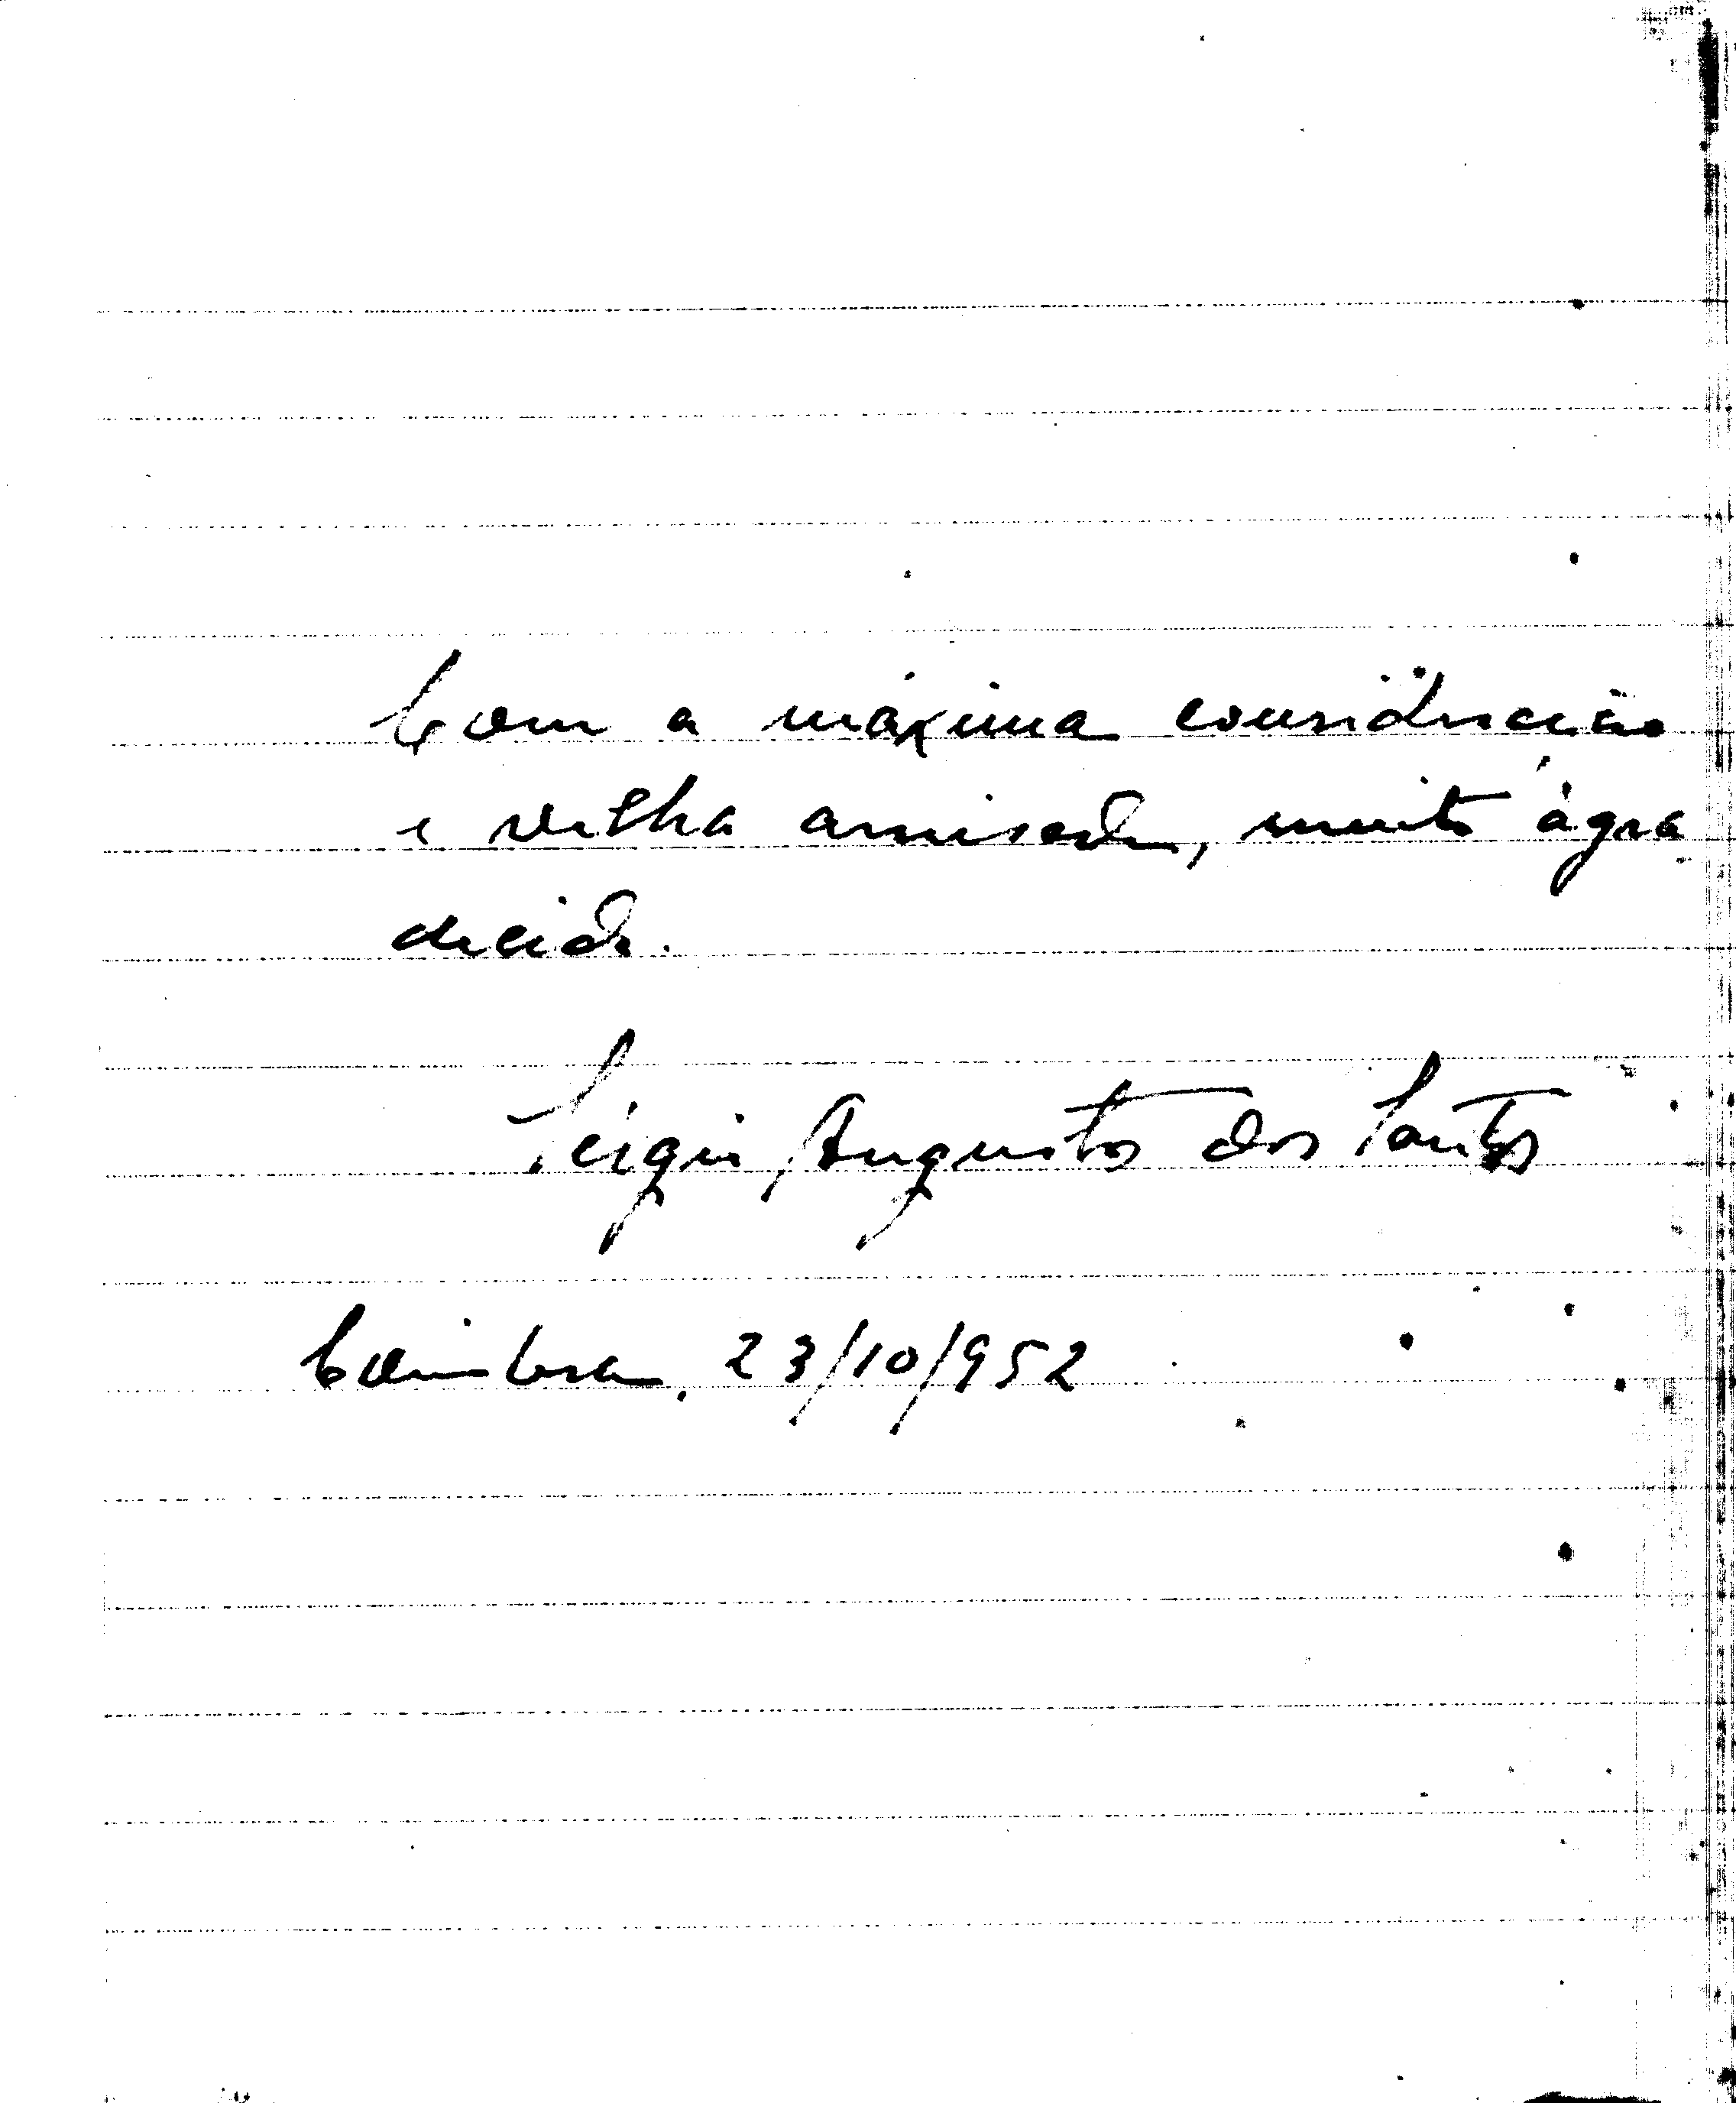 Com a máxima consideração
e velha amisade, muito àgra
decido.
Sérgio Augusto dos Santos
Coimbra, 23/10/952